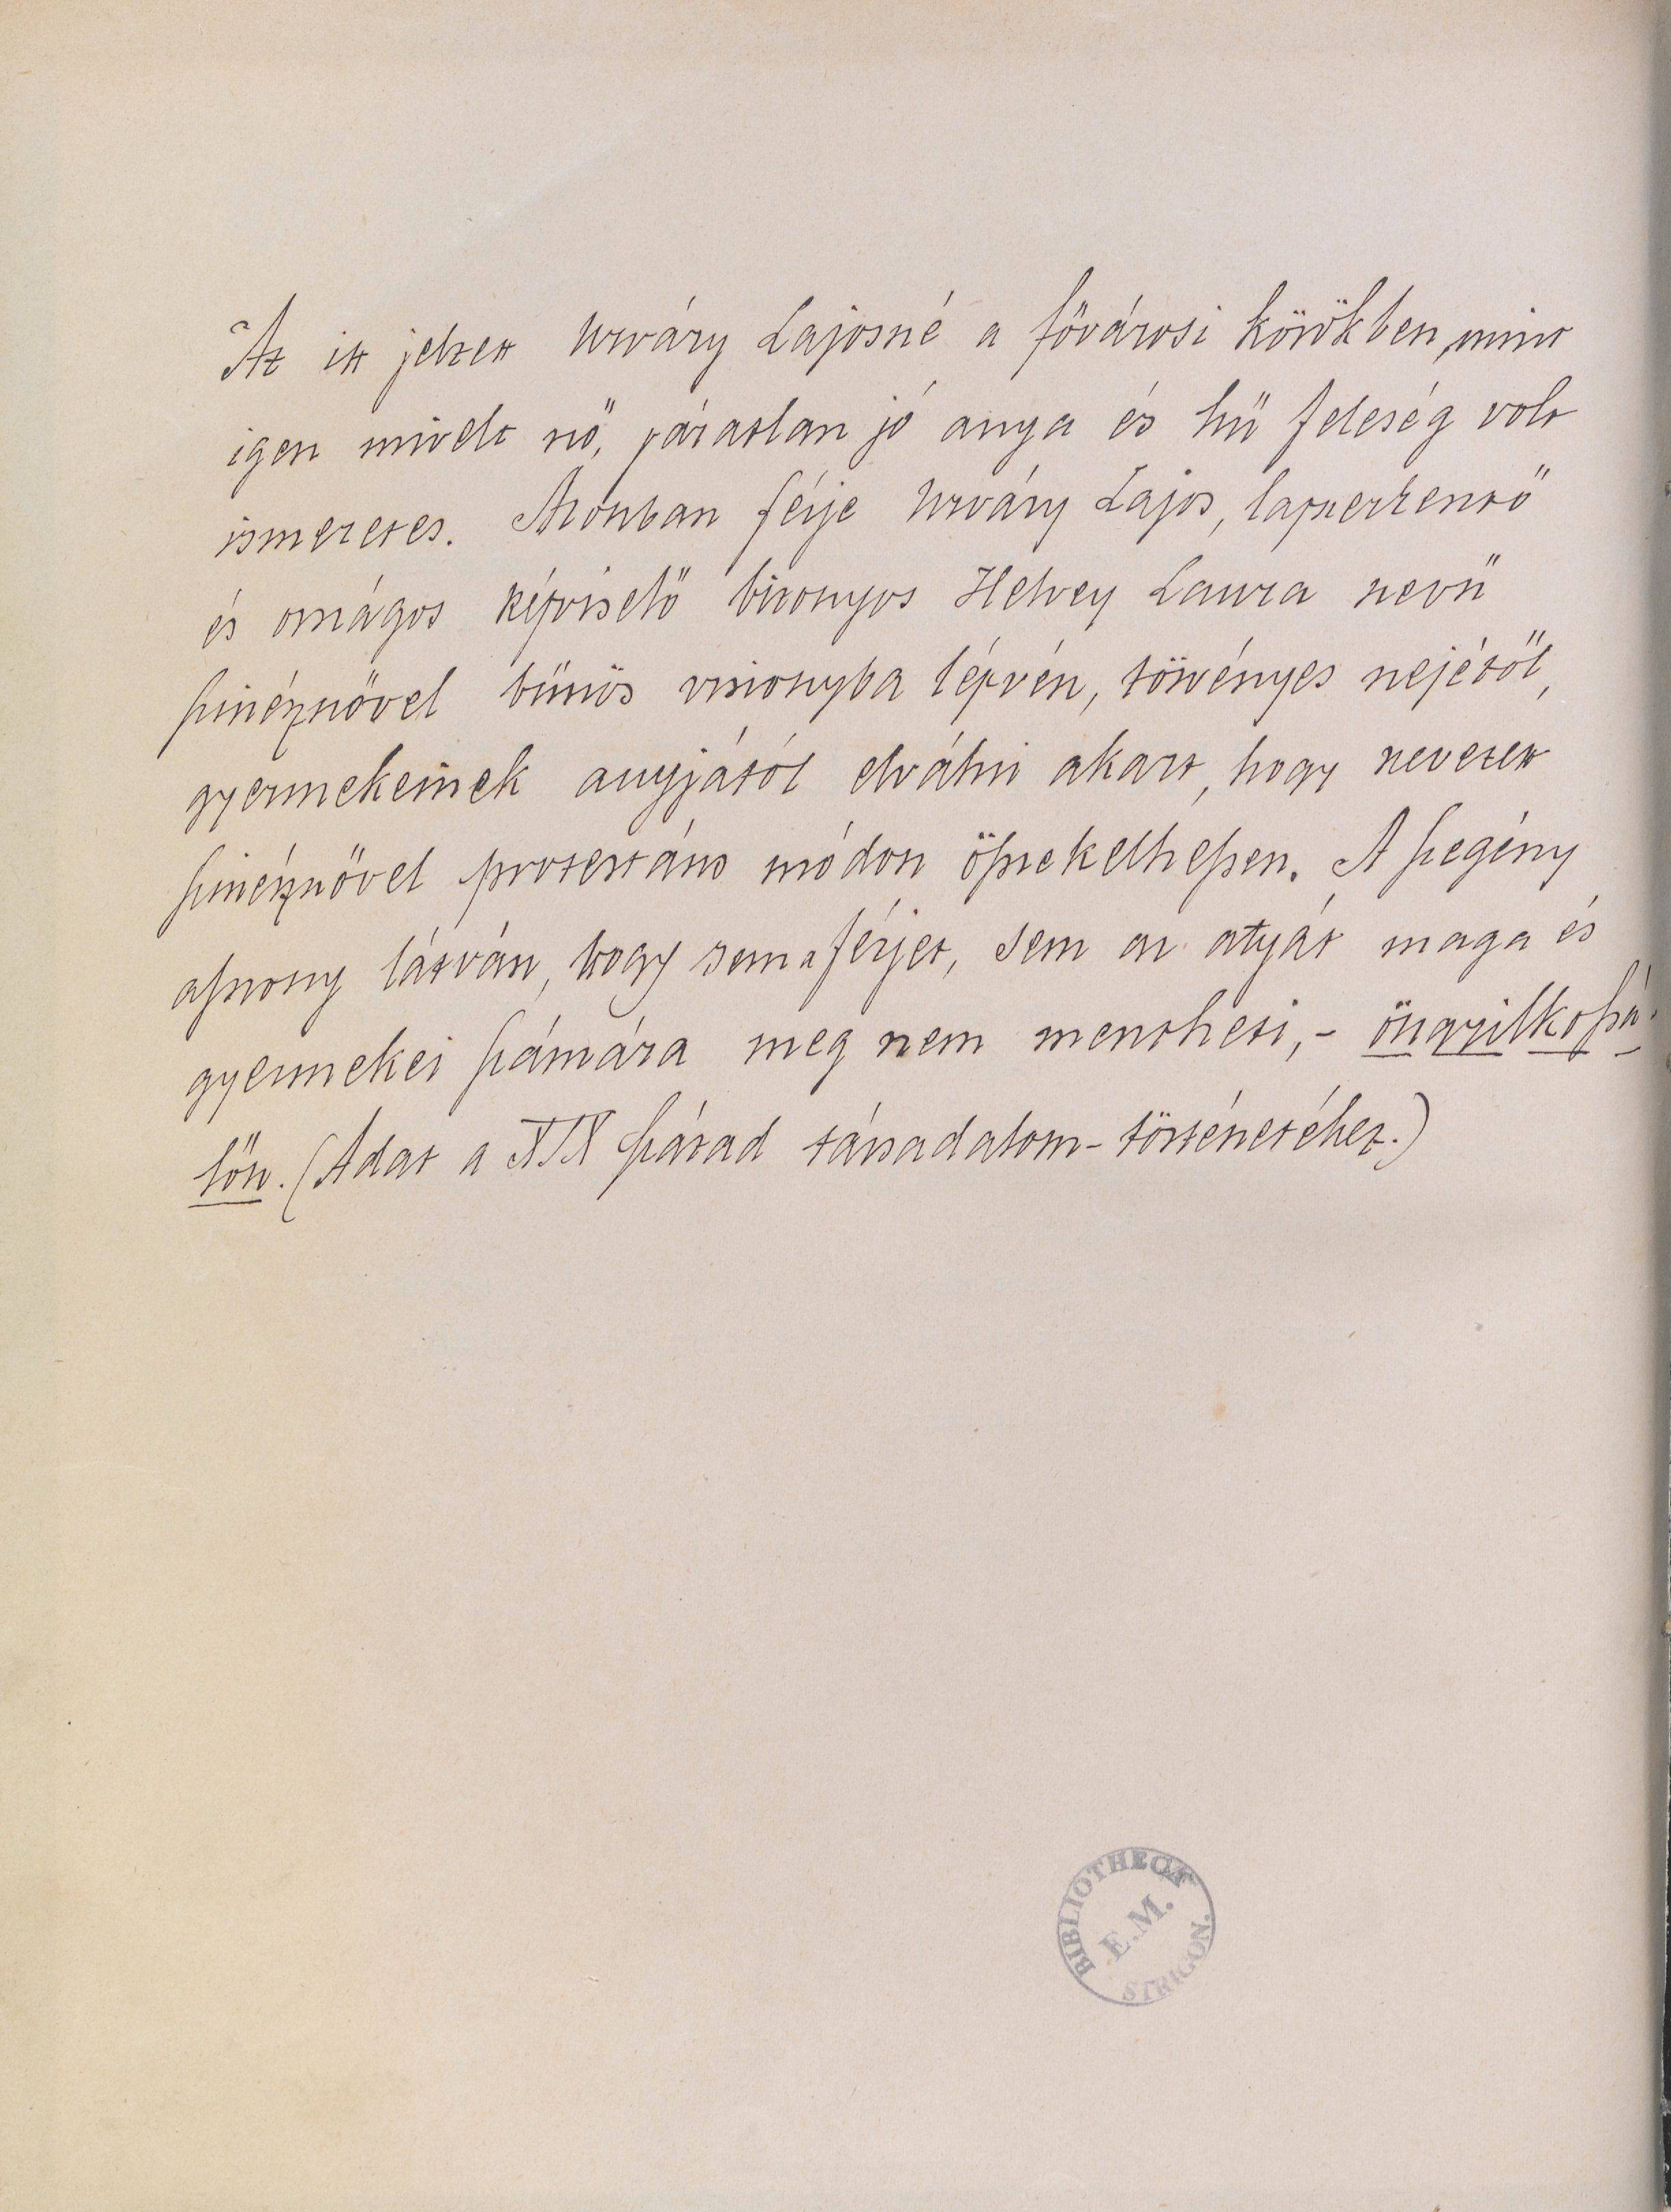 Az itt jelzett Urváry Lajosné a fővárosi körökben, mint
igen mivelt nő, páratlan jó anya és hű feleség volt
ismeretes. Azonban férje Urváry Lajos, lapszerkesztő
és országos képviselő bizonyos Helvey Laura nevű
szinésznővel bűnös viszonyba lépvén, törvényes nejétől,
gyermekeinek anyjától elválni akart, hogy nevezett
szinésznővel protestáns módon összekelhessen. A szegény
asszony látván, hogy sem a férjet, sem az atyát maga és
gyermekei számára meg nem mentheti, - öngyilkossá
lőn. (Adat a XIX század társadalom-történetéhez.)
BIBLIOTHECA
E.M.
STRIGON.